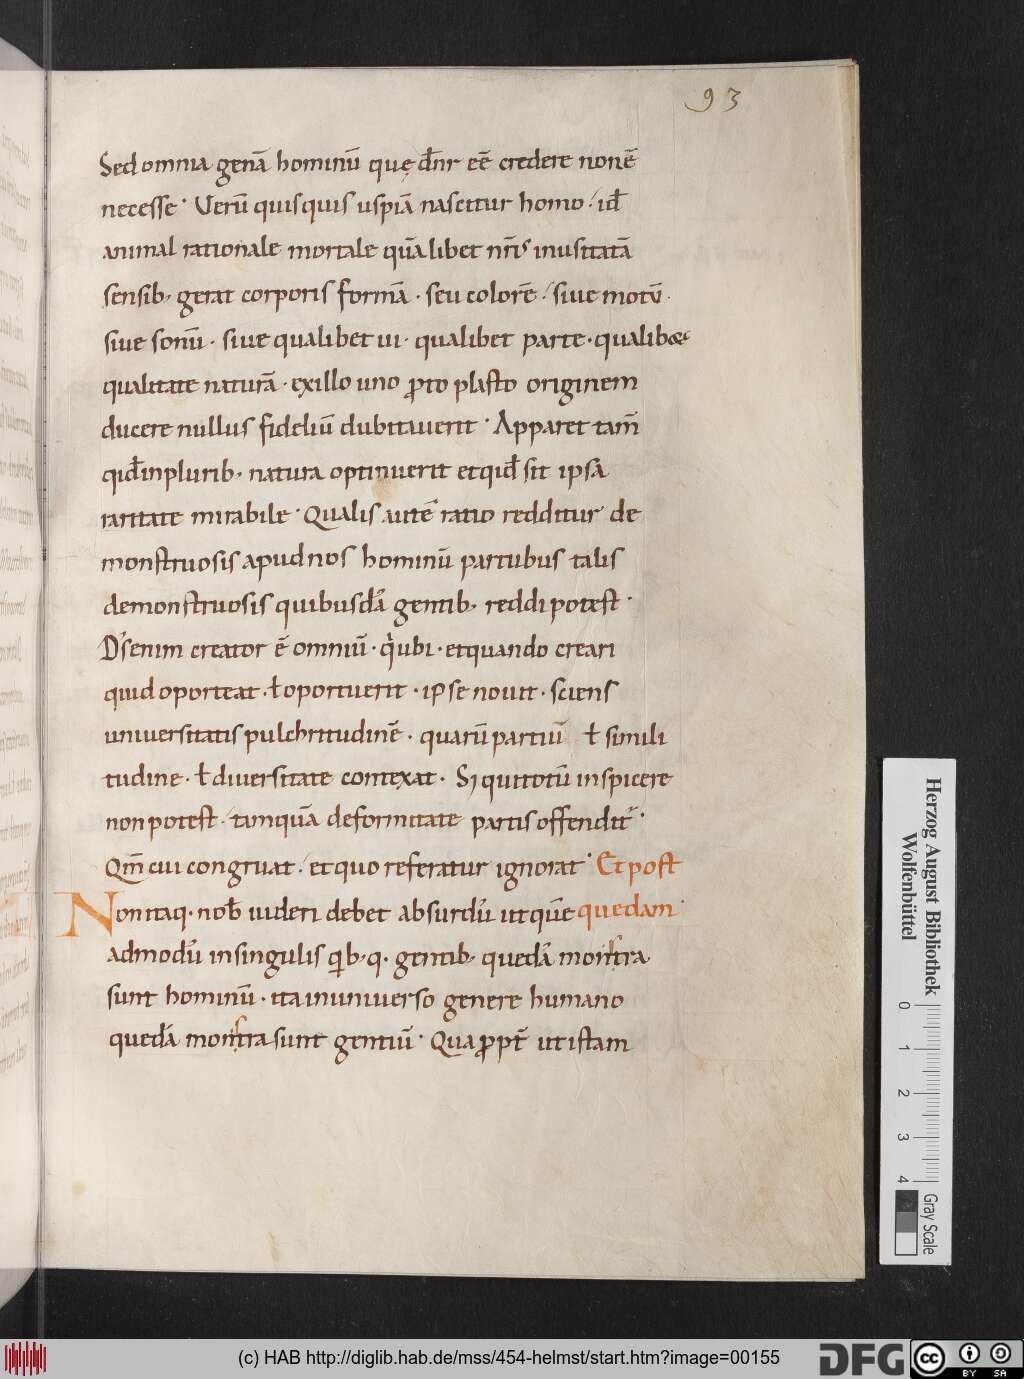 93
Sed omnia genā hominū quę dn̄r eē credere nonē
necesse · Verū quisquis uspiā nascitur homo · id̄
animal rationale mortale quālibet nr̄is inusitatā
sensib; gerat corporis formā · seu colorē · siue motū ·
siue sonū · siue qualibet ui · qualibet parte · qualibet
qualitate naturā · exillo uno ꝓto plasto originem
ducere nullus fideliū dubitauerit · Apparet tam̄
qid̄ inplurib; natura optinuerit etqid̄ sit ipsa
raritate mirabile · Qualis autē ratio redditur de
monstruosis apud nos hominū partubus talis
demonstruosis quibusdā gentib; reddi potest ·
Ds̄ enim creator ē omniū · q̇ ubi · etquando creari
quid oporteat · ł oportuerit · ipse nouit · sciens
uniuersitatis pulchritudinē · quarū partiū ł simili
tudine · ł diuersitate contexat · Sꝫ qui totū inspicere
non potest · tanquā deformitate partis offendit᷑ ·
Qm̄ cui congruat · et quo referatur ignorat · Et post
Non itaq; nob̄ uideri debet absurdū ut quē quedam ·
admodū in singulis qib; q; gentib; quedā monstra
sunt hominū · ita inuniuerso genere humano
quedā monstra sunt gentiū · Qua ꝓpt̄ ut istam
Herzog August Bibliothek
Wolfenbüttel
0 1 2 3 4
Gray Scale
(c) HAB http://diglib.hab.de/mss/454-helmst/start.htm?image=00155
DFG
cc BY SA